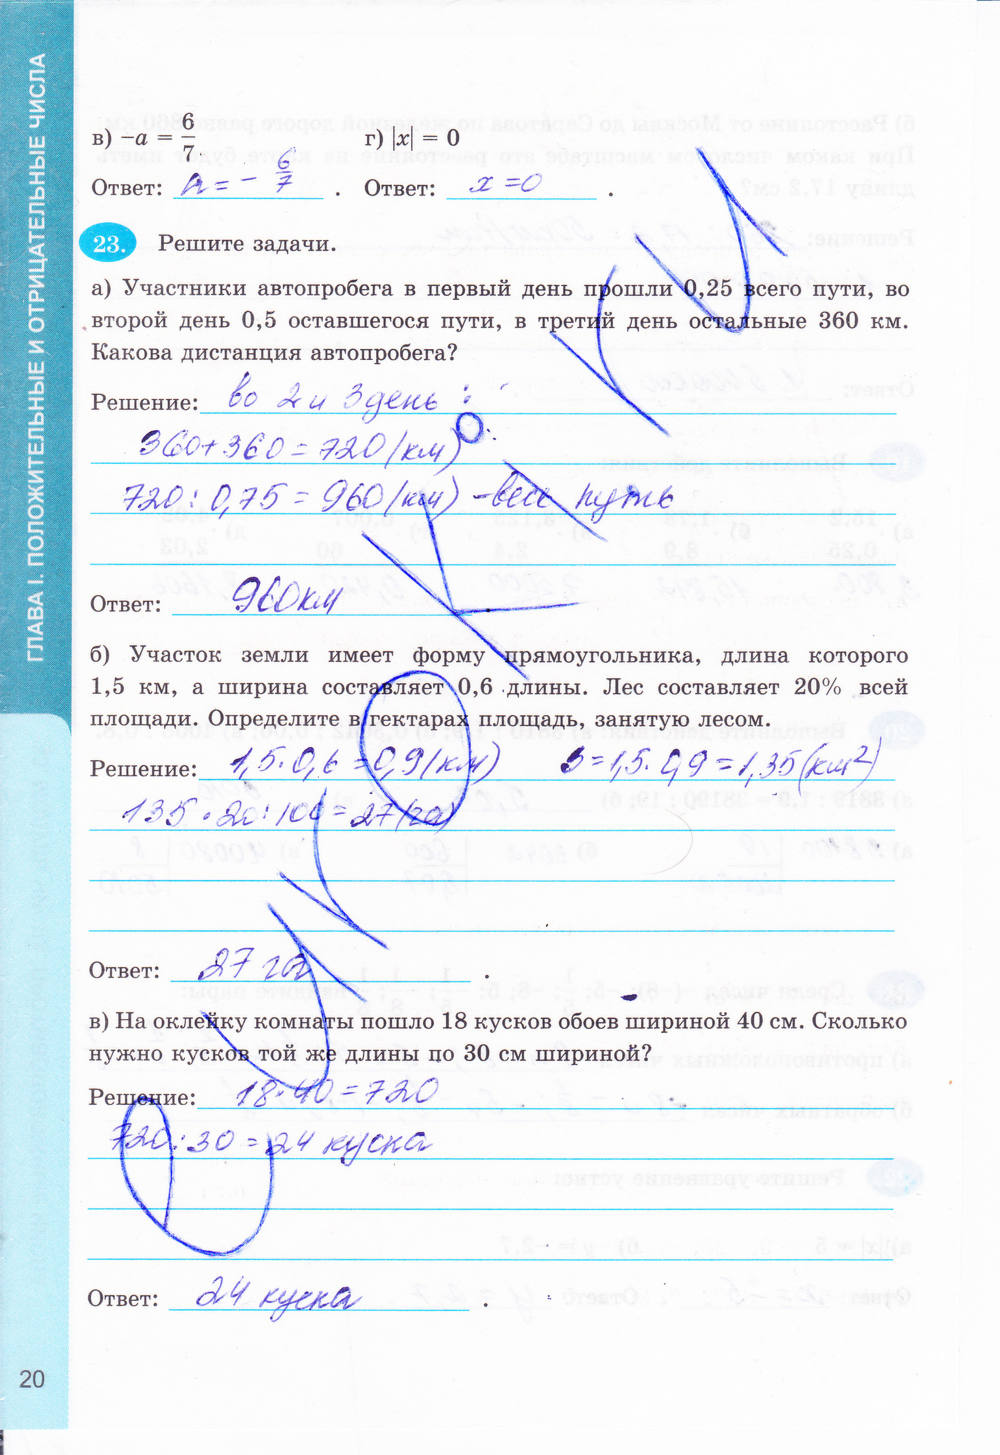 ГЛАВА I. ПОЛОЖИТЕЛЬНЫЕ И ОТРИЦАТЕЛЬНЫЕ ЧИСЛА
в) –a = 6/7 г) |x| = 0
Ответ: a = - 6/7 . Ответ: x = 0 .
23. Решите задачи.
а) Участники автопробега в первый день прошли 0,25 всего пути, во
второй день 0,5 оставшегося пути, в третий день остальные 360 км.
Какова дистанция автопробега?
Решение: во 2 и 3 день :
360+360=720 (км)
720 : 0,75 = 960 (км) - весь путь
Ответ: 960 км
б) Участок земли имеет форму прямоугольника, длина которого
1,5 км, а ширина составляет 0,6 длины. Лес составляет 20% всей
площади. Определите в гектарах площадь, занятую лесом.
Решение: 1,5 · 0,6 = 0,9 (км) S = 1,5 · 0,9 = 1,35 (км²)
135 · 20 : 100 = 27 (га)
Ответ: 27 га .
в) На оклейку комнаты пошло 18 кусков обоев шириной 40 см. Сколько
нужно кусков той же длины по 30 см шириной?
Решение: 18 · 40 = 720
720 : 30 = 24 куска
Ответ: 24 куска .
20